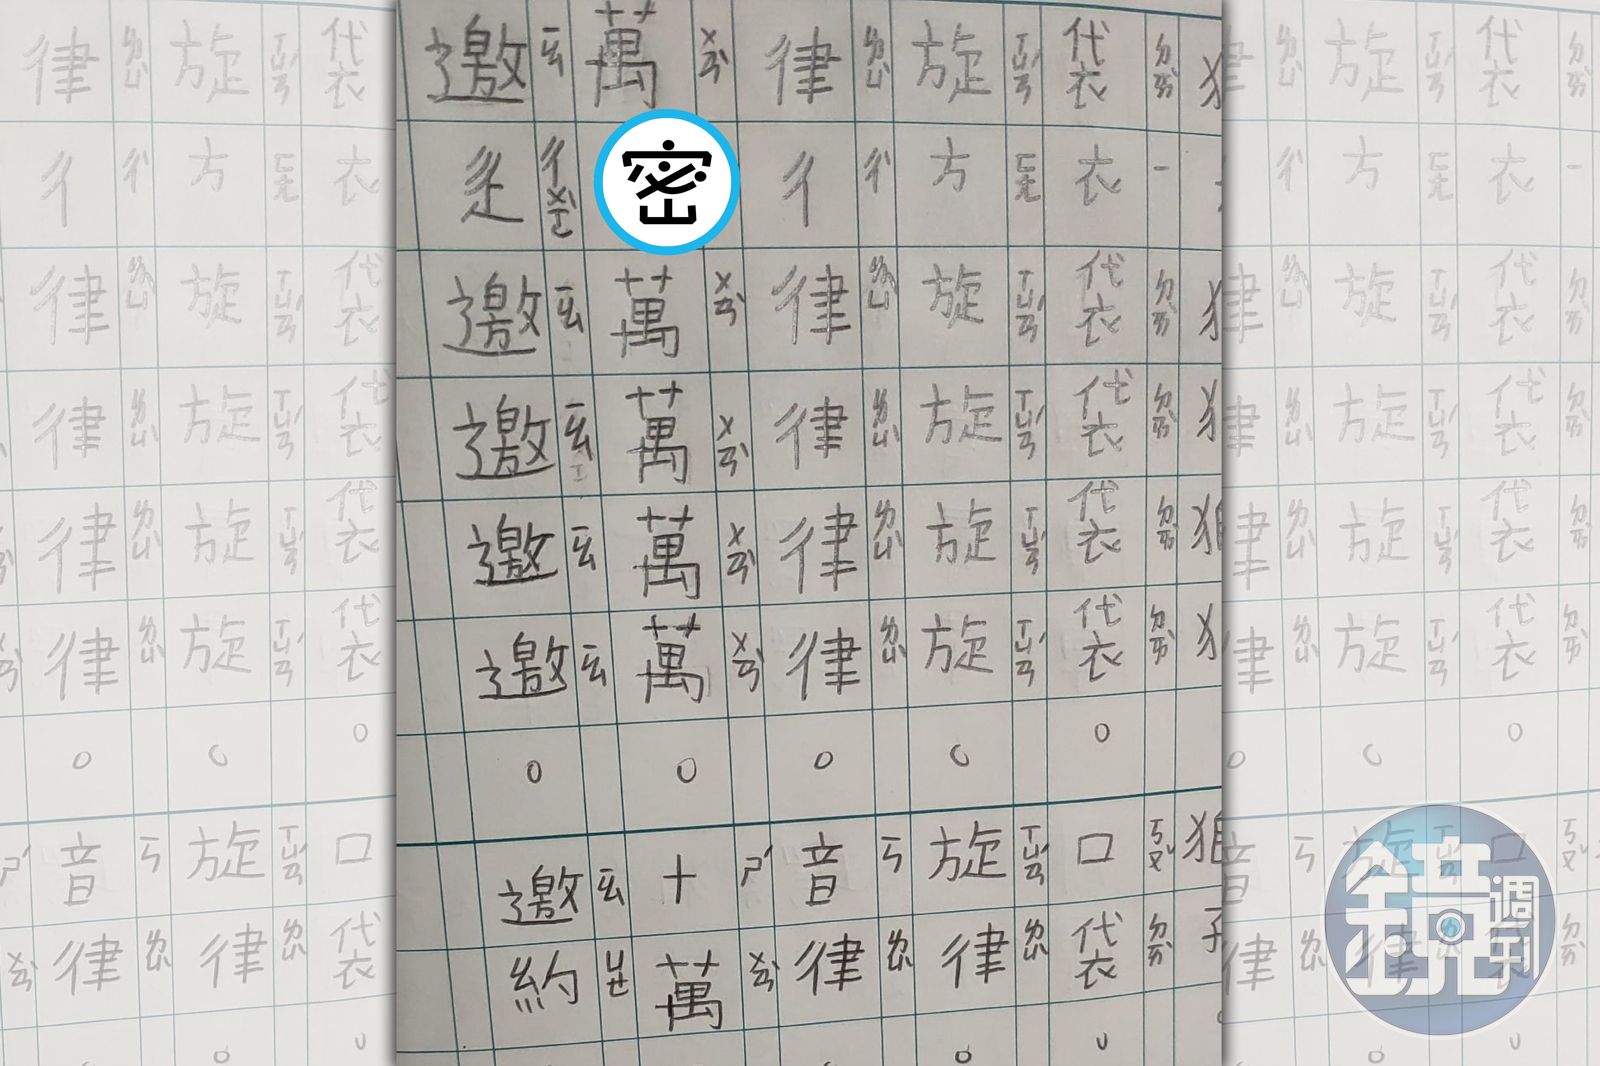 狼
子
袋 ㄉㄞˋ
衣 ㄧ
袋 ㄉㄞˋ
袋 ㄉㄞˋ
袋 ㄉㄞˋ
袋 ㄉㄞˋ
口 ㄎㄡˇ
袋 ㄉㄞˋ
旋 ㄒㄩㄢˊ
方 ㄈㄤ
旋 ㄒㄩㄢˊ
旋 ㄒㄩㄢˊ
旋 ㄒㄩㄢˊ
旋 ㄒㄩㄢˊ
旋 ㄒㄩㄢˊ
律 ㄌㄩˋ
律 ㄌㄩˋ
彳 ㄔˋ
律 ㄌㄩˋ
律 ㄌㄩˋ
律 ㄌㄩˋ
律 ㄌㄩˋ
音 ㄧㄣ
律 ㄌㄩˋ
萬 ㄨㄢˋ
密
萬 ㄨㄢˋ
萬 ㄨㄢˋ
萬 ㄨㄢˋ
萬 ㄨㄢˋ
十 ㄕˊ
萬 ㄨㄢˋ
邀 ㄧㄠ
辵
邀 ㄧㄠ
邀 ㄧㄠ
邀 ㄧㄠ
邀 ㄧㄠ
邀 ㄧㄠ
約 ㄩㄝ
鏡週刊